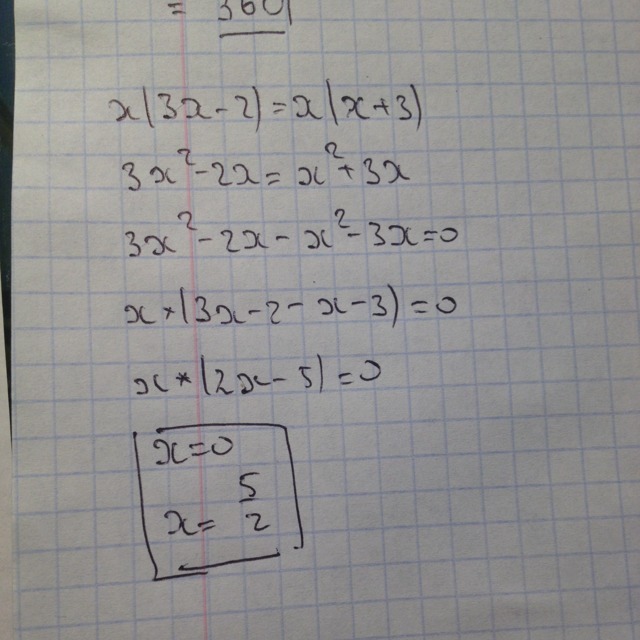 = 360
x(3x-2)=x(x+3)
3x²-2x=x²+3x
3x²-2x-x²-3x=0
x*(3x-2-x-3)=0
x*(2x-5)=0
x=0
5
x= 2